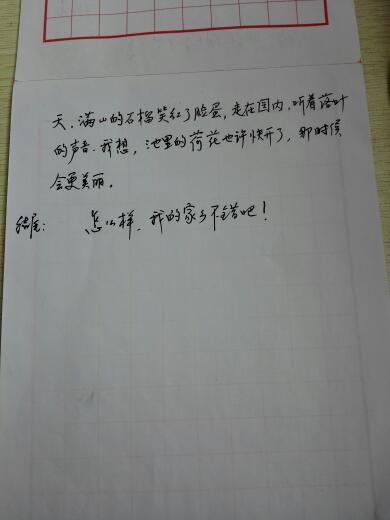 天，满山的石榴笑红了脸蛋，走在园内，听着落叶
的声音。我想，池里的荷花也许快开了，那时候
会更美丽。
结尾： 怎么样，我的家乡不错吧！